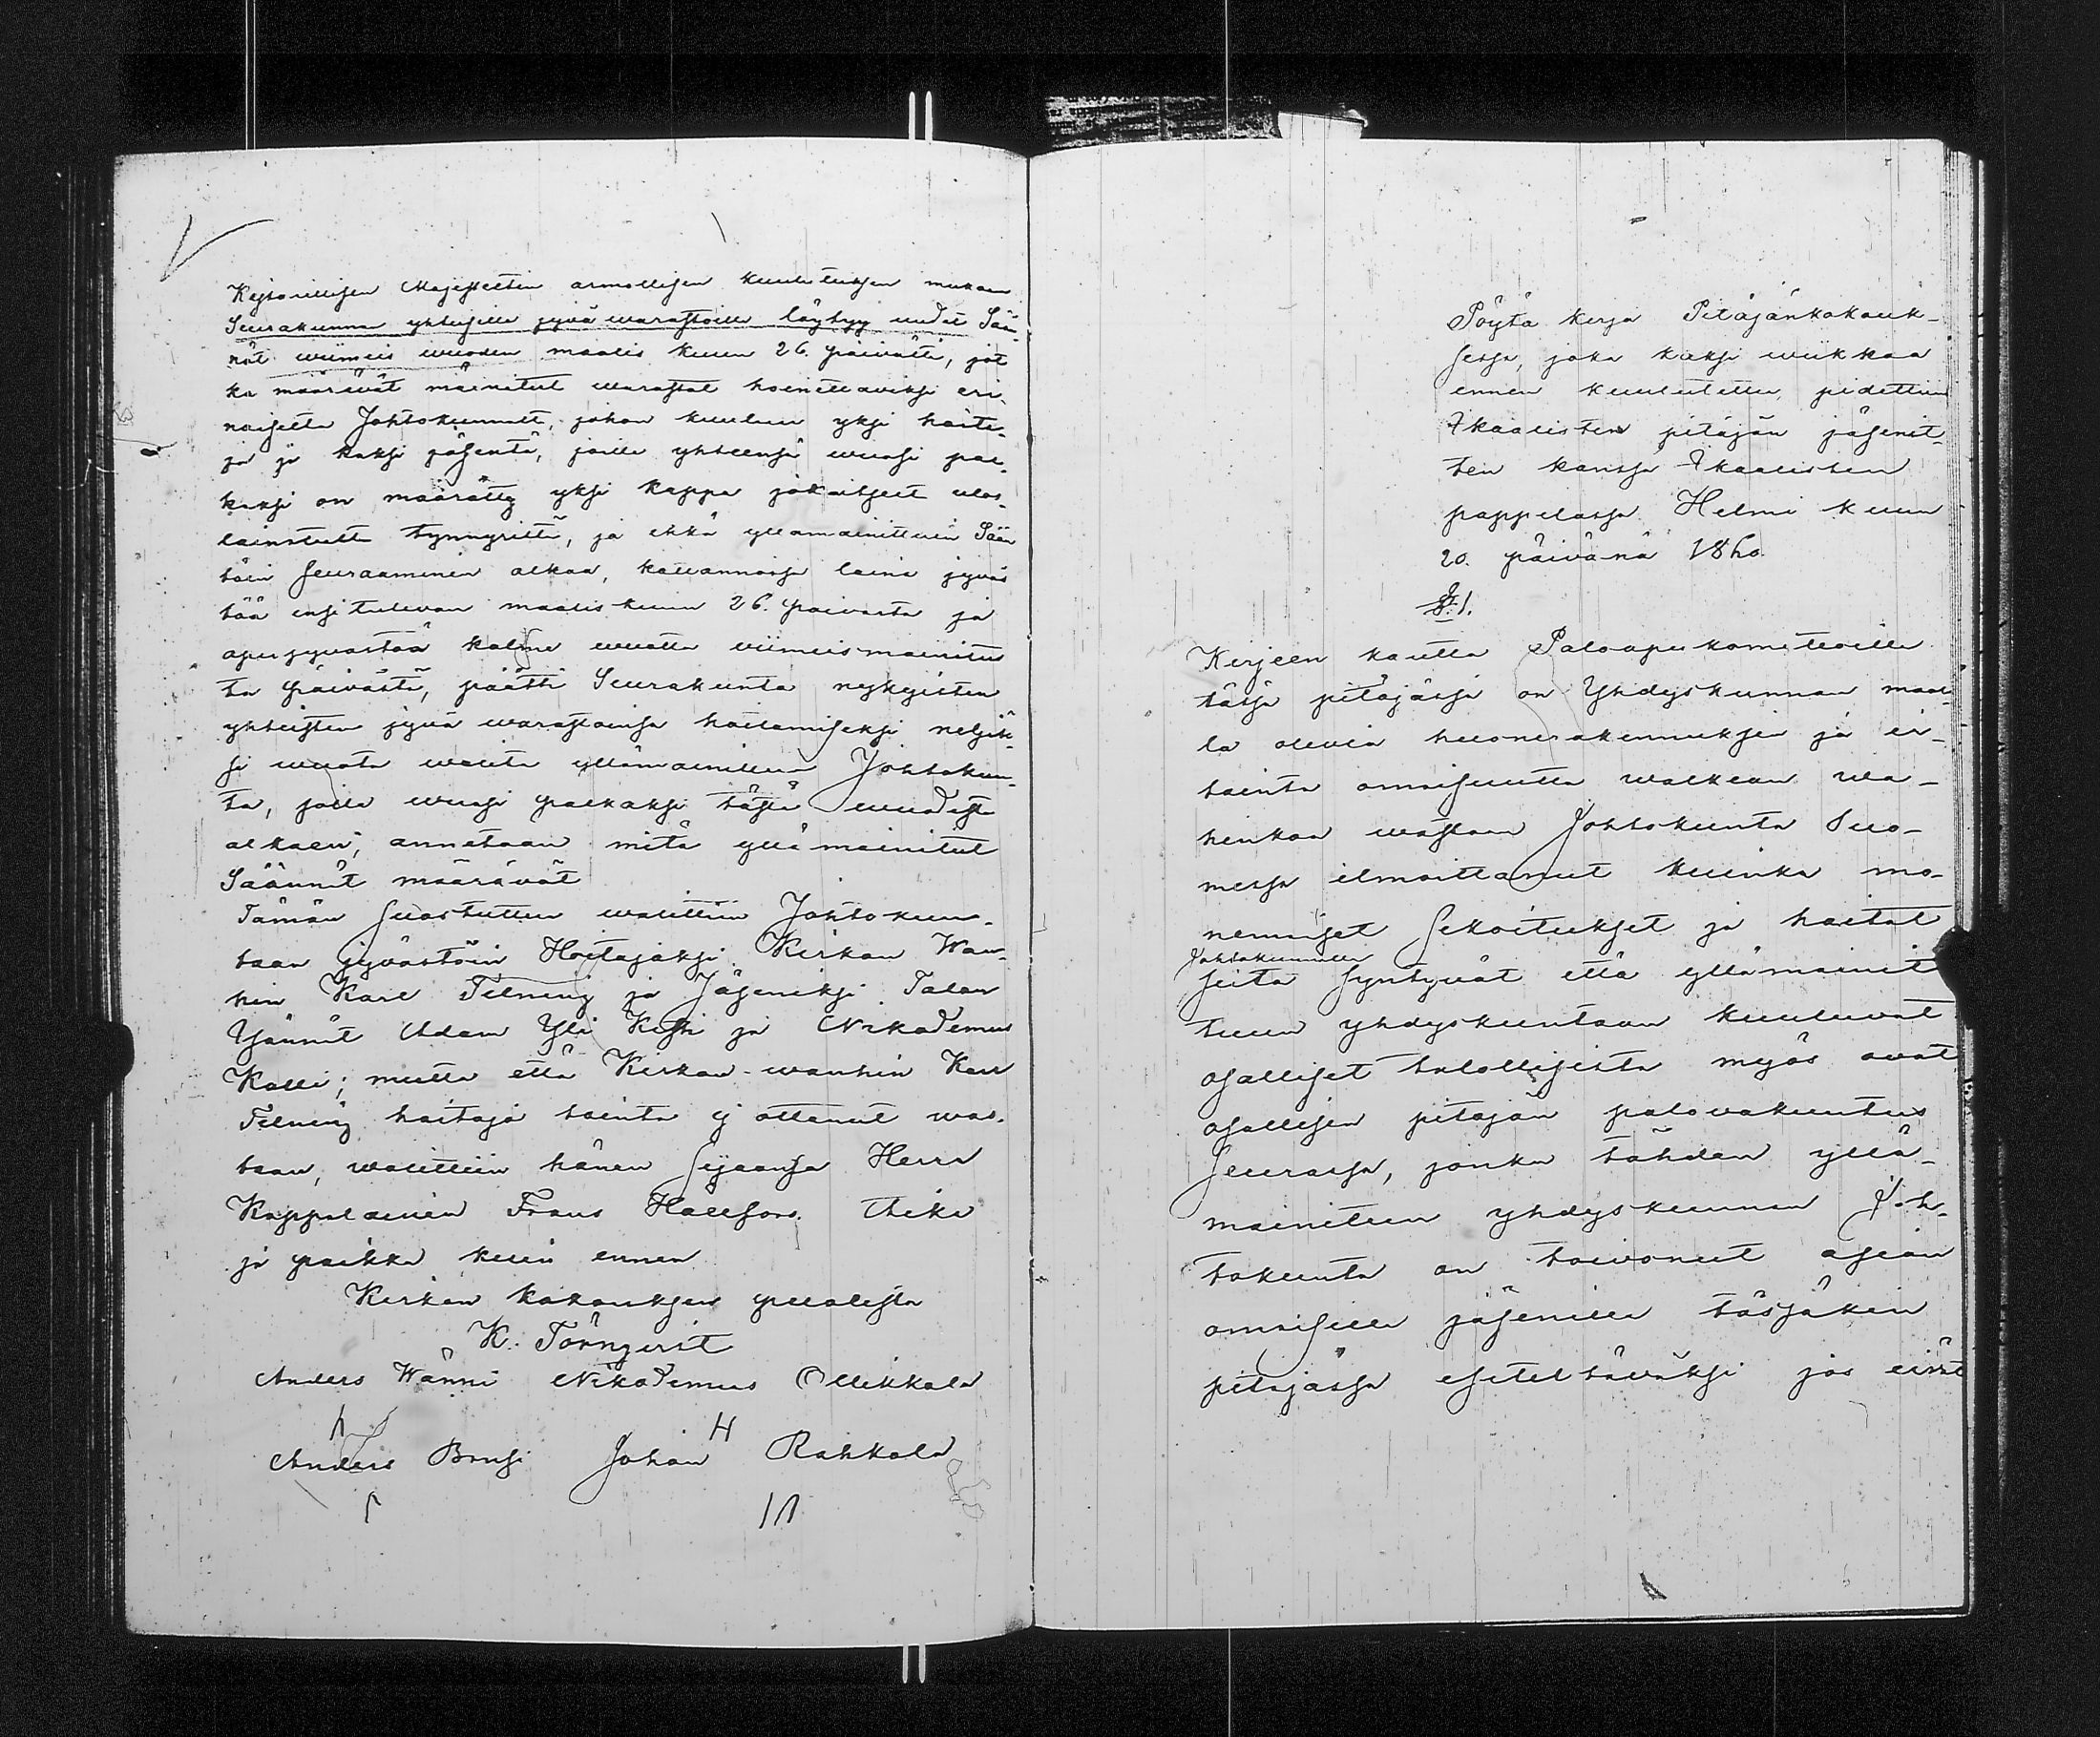 Kejsarillisen Majestetin armollisen kuulutuksen mukaan
Seurakunnan yhteisille jyvä warastoille löytyy uudet Sään-
nöt wiimeis wuoden maalis kuun 26. päivältä, jot
ka määräävät mainitut warastot hoidettaviksi eri-
naiselta Johtokunnalt, johon kuuluu yksi hoita-
ja ja kaksi jäsentä, joille yhteensä wuosi pal-
kaksi on määrätty yksi kappa jokaitselt ulos-
lainatulta tynnyriltä, ja ehkä yllämainittuin Sään
töin seuraaminen alkaa, kaluannossa laina jyväs
töä ensitulevan maaliskuun 26. päivästä ja
apujyvästöä kolme wuotta viimeismainitus
ta päivästä, päätti Seurakunta nykyisten
yhteisten jyvä warastoinsa hoitamiseksi neljäk-
si wuota walita yllämainitun Johtokun-
ta, joille wuosi palkaksi tästä wuodesta
alkaen, annetaan mitä yllä mainitut
Säännöt määrävät
Tämän suostuttua walittiin Johtokun-
taan jyvästöin Hoitajaksi Kirkon Wan-
hin Karl Telning ja Jäseniksi Talon
Ysännät Adam Yli Kesti ja Nikodemus
Kalli; mutta että Kirkon-wanhin Karl
Telning hoitaja tointa ej ottanut was-
taan, walittiin hänen sijaansa Herra
Kappalainen Frans Hallfors. Aika
ja paikka kuin ennen
Kirkon kokouksen puolesta
K. Törnqvist
Anders Wänni Nikodemus Ollikkala
Anders Brusi Johan H Rahkola
Pöytä kirja Pitäjänkokouk-
sessa, joka kaksi wiikkaa
ennen kuulutettu, pidettiin
Ikaalisten pitäjän jäsenit-
ten kanssa Ikaalisten
pappilassa Helmi kuun
20. päivänä 1860.
§ 1.
Kirjeen kautta Paloapukomiteoille
tässä pitäjässä on Yhdyskunnan maal-
la olevia huonerakennuksia ja ir-
tainta omaisuutta walkean wa-
hinkoa wastaan Johtokunta Suo-
messa ilmoittanut kuinka mo-
nenaiset sekoitukset ja haitat
Johtokunnalle
siitä syntyvät että yllämainit
tuun yhdyskuntaan kuuluvat
osalliset talollisista myös ovat
osallisia pitäjän palovakuutus
seurassa, jonka tähden yllä-
mainitun yhdyskunnan Joh-
tokunta on toivonut asian
omaisille jäsenille tässäkin
pitäjässä esiteltäväksi jos eivät